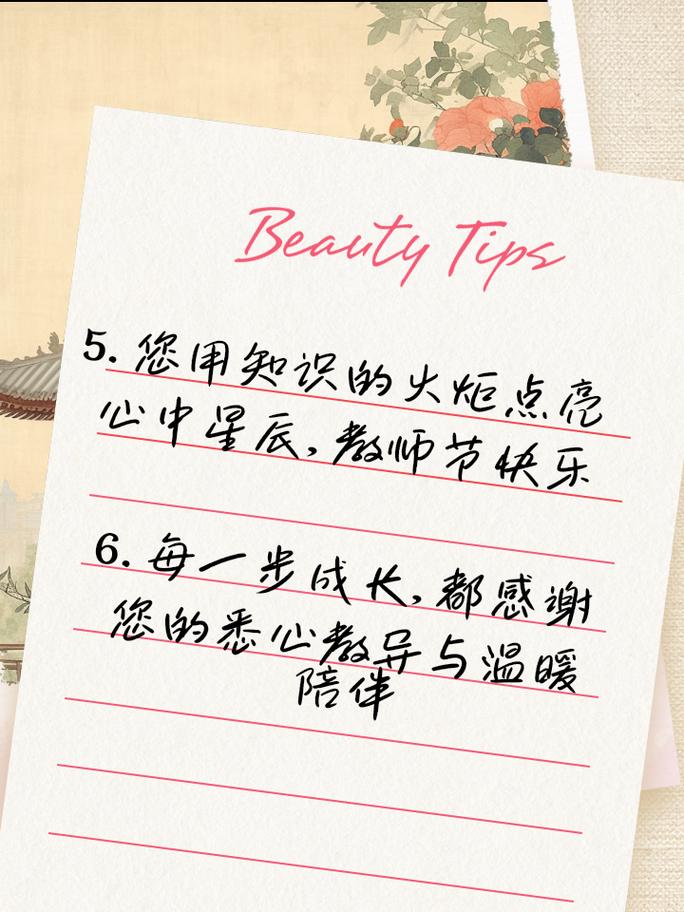 Beauty Tips
5. 您用知识的火炬点亮
心中星辰,教师节快乐
6. 每一步成长,都感谢
您的悉心教导与温暖
陪伴